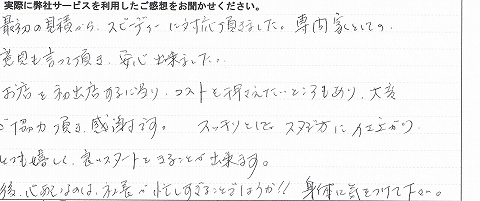 実際に弊社サービスを利用したご感想をお聞かせください。
最初の見積から、スピーディーに対応頂きました。専門家としての
意見も言って頂き、安心出来ました。
お店を初出店するに当り、コストを押さえたいところもあり、大変
ご協力頂き感謝です。 スッキリとした、ステキな に仕上がり
とても嬉しく、良いスタートをきることが出来ます。
後、心配なのは、社長が忙しすぎることでしょうか!! 身体に気をつけて下さい。